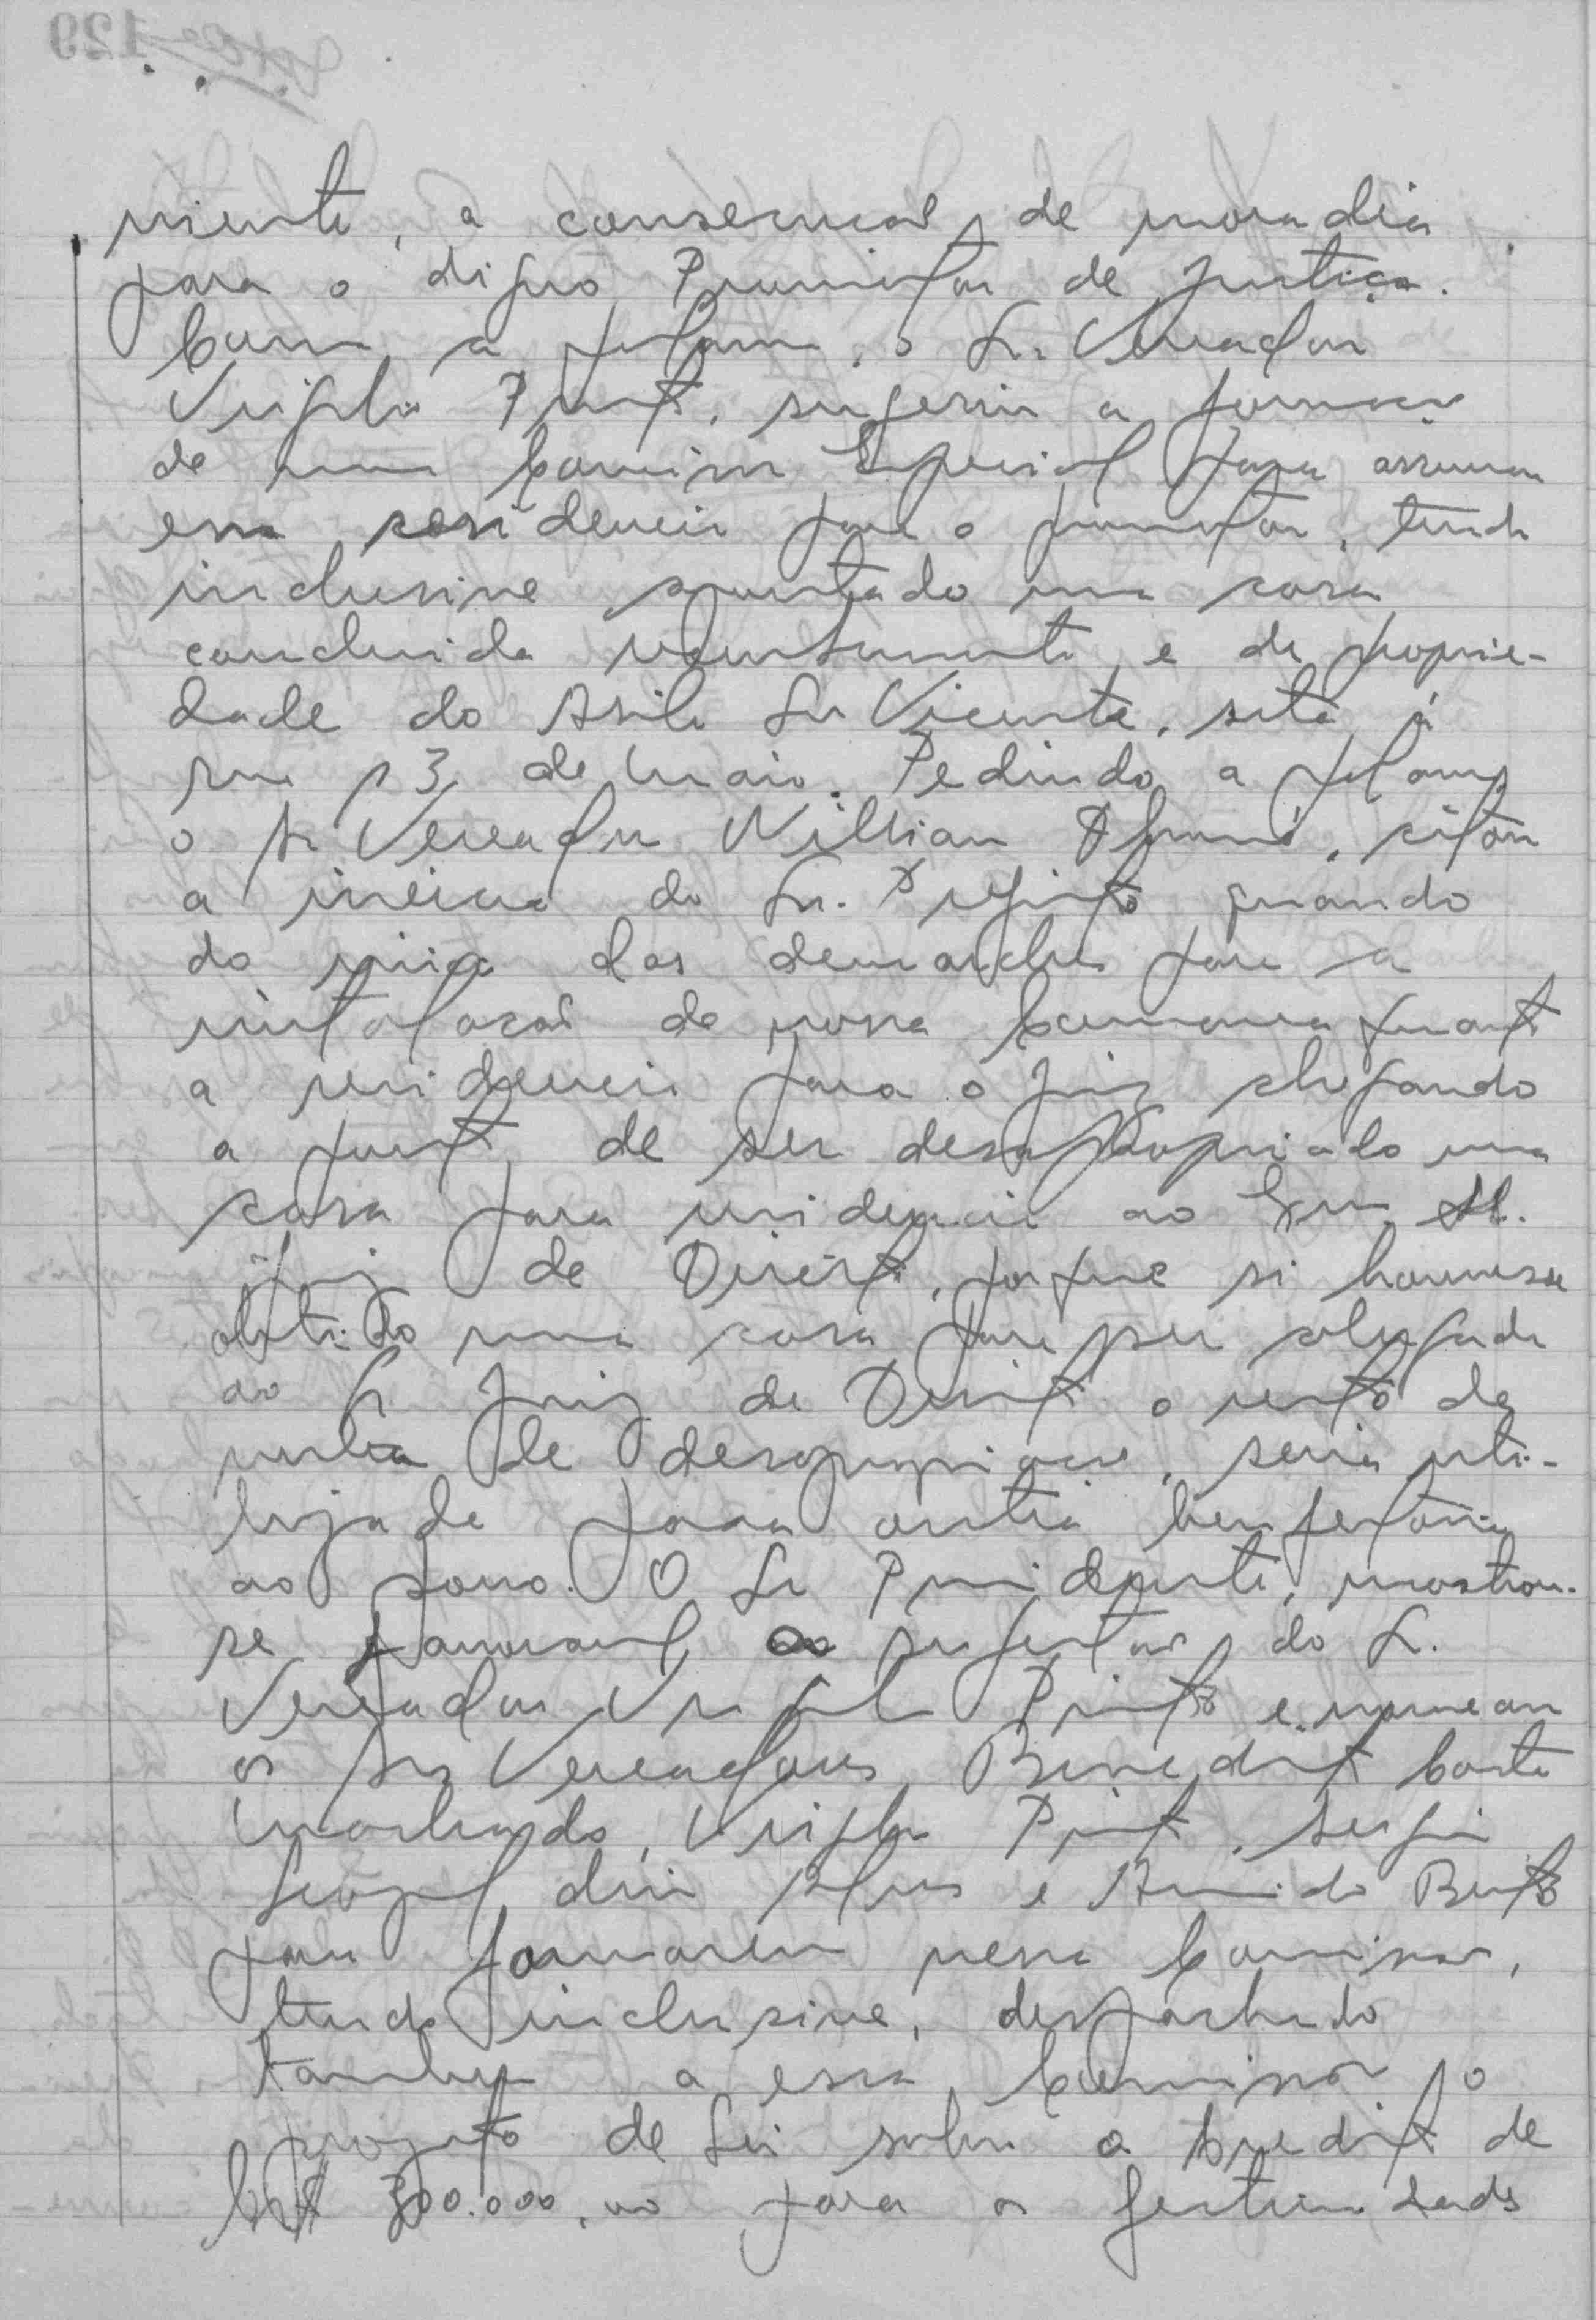 niente, a consecução de moradia
para o digno Promotor de Justiça.
Com a palavra, o Sr. Vereador
Virgilio Pinto, sugeriu a formação
de uma Comissão Especial para
essa residencia para o promotor, tendo
inclusive apontado uma casa
concluida recentemente e de proprie-
dade do Asilo São Vicente, sita á
rua 13 de Maio. Pedindo a palavra
o Sr Vereador Willian, citou
a do Sr. Prefeito quando
do inicio das demarches para a
instalação de nossa Comarca quanto
a residencia para o Juiz chegando
a ponto de ser desapropriado uma
casa para residencia ao Exmo Sr.
Juiz de Direito, porque si houvesse
obtido uma casa para ser alugada
ao Sr Juiz de Direito o resto da
verba de desapropriação, seria uti-
lizada para outra benfeitoria
ao povo. O Sr Presidente, mostrou-
se favoravel ao sugestão do Sr.
Vereador Virgilio Pinto e nomeou
os Srs Vereadores Benedito Costa
Machado, Virgilio Pinto, Sergio
Alves e Bento
para formarem nessa Comissão,
tendo inclusive, despachado
tambem a essa Comissão o
projeto de Lei sobre o Credito de
Cr$ 300.000,00 para as festividades